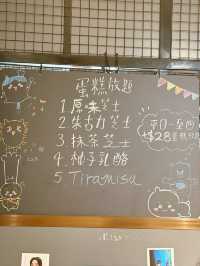 蛋糕放題
1 原味芝士
2 朱古力芝士
3 抹茶芝士
4. 柚子乳酪
5 Tiramisu
+$28